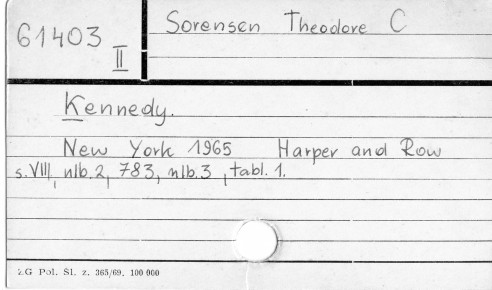 61403
II
Sorensen Theodore C
Kennedy.
New York 1965 Harper and Row
s. VIII, nlb. 2, 783, nlb. 3, tabl. 1.
ŁG Pol. Śl. z. 365/69. 100 000